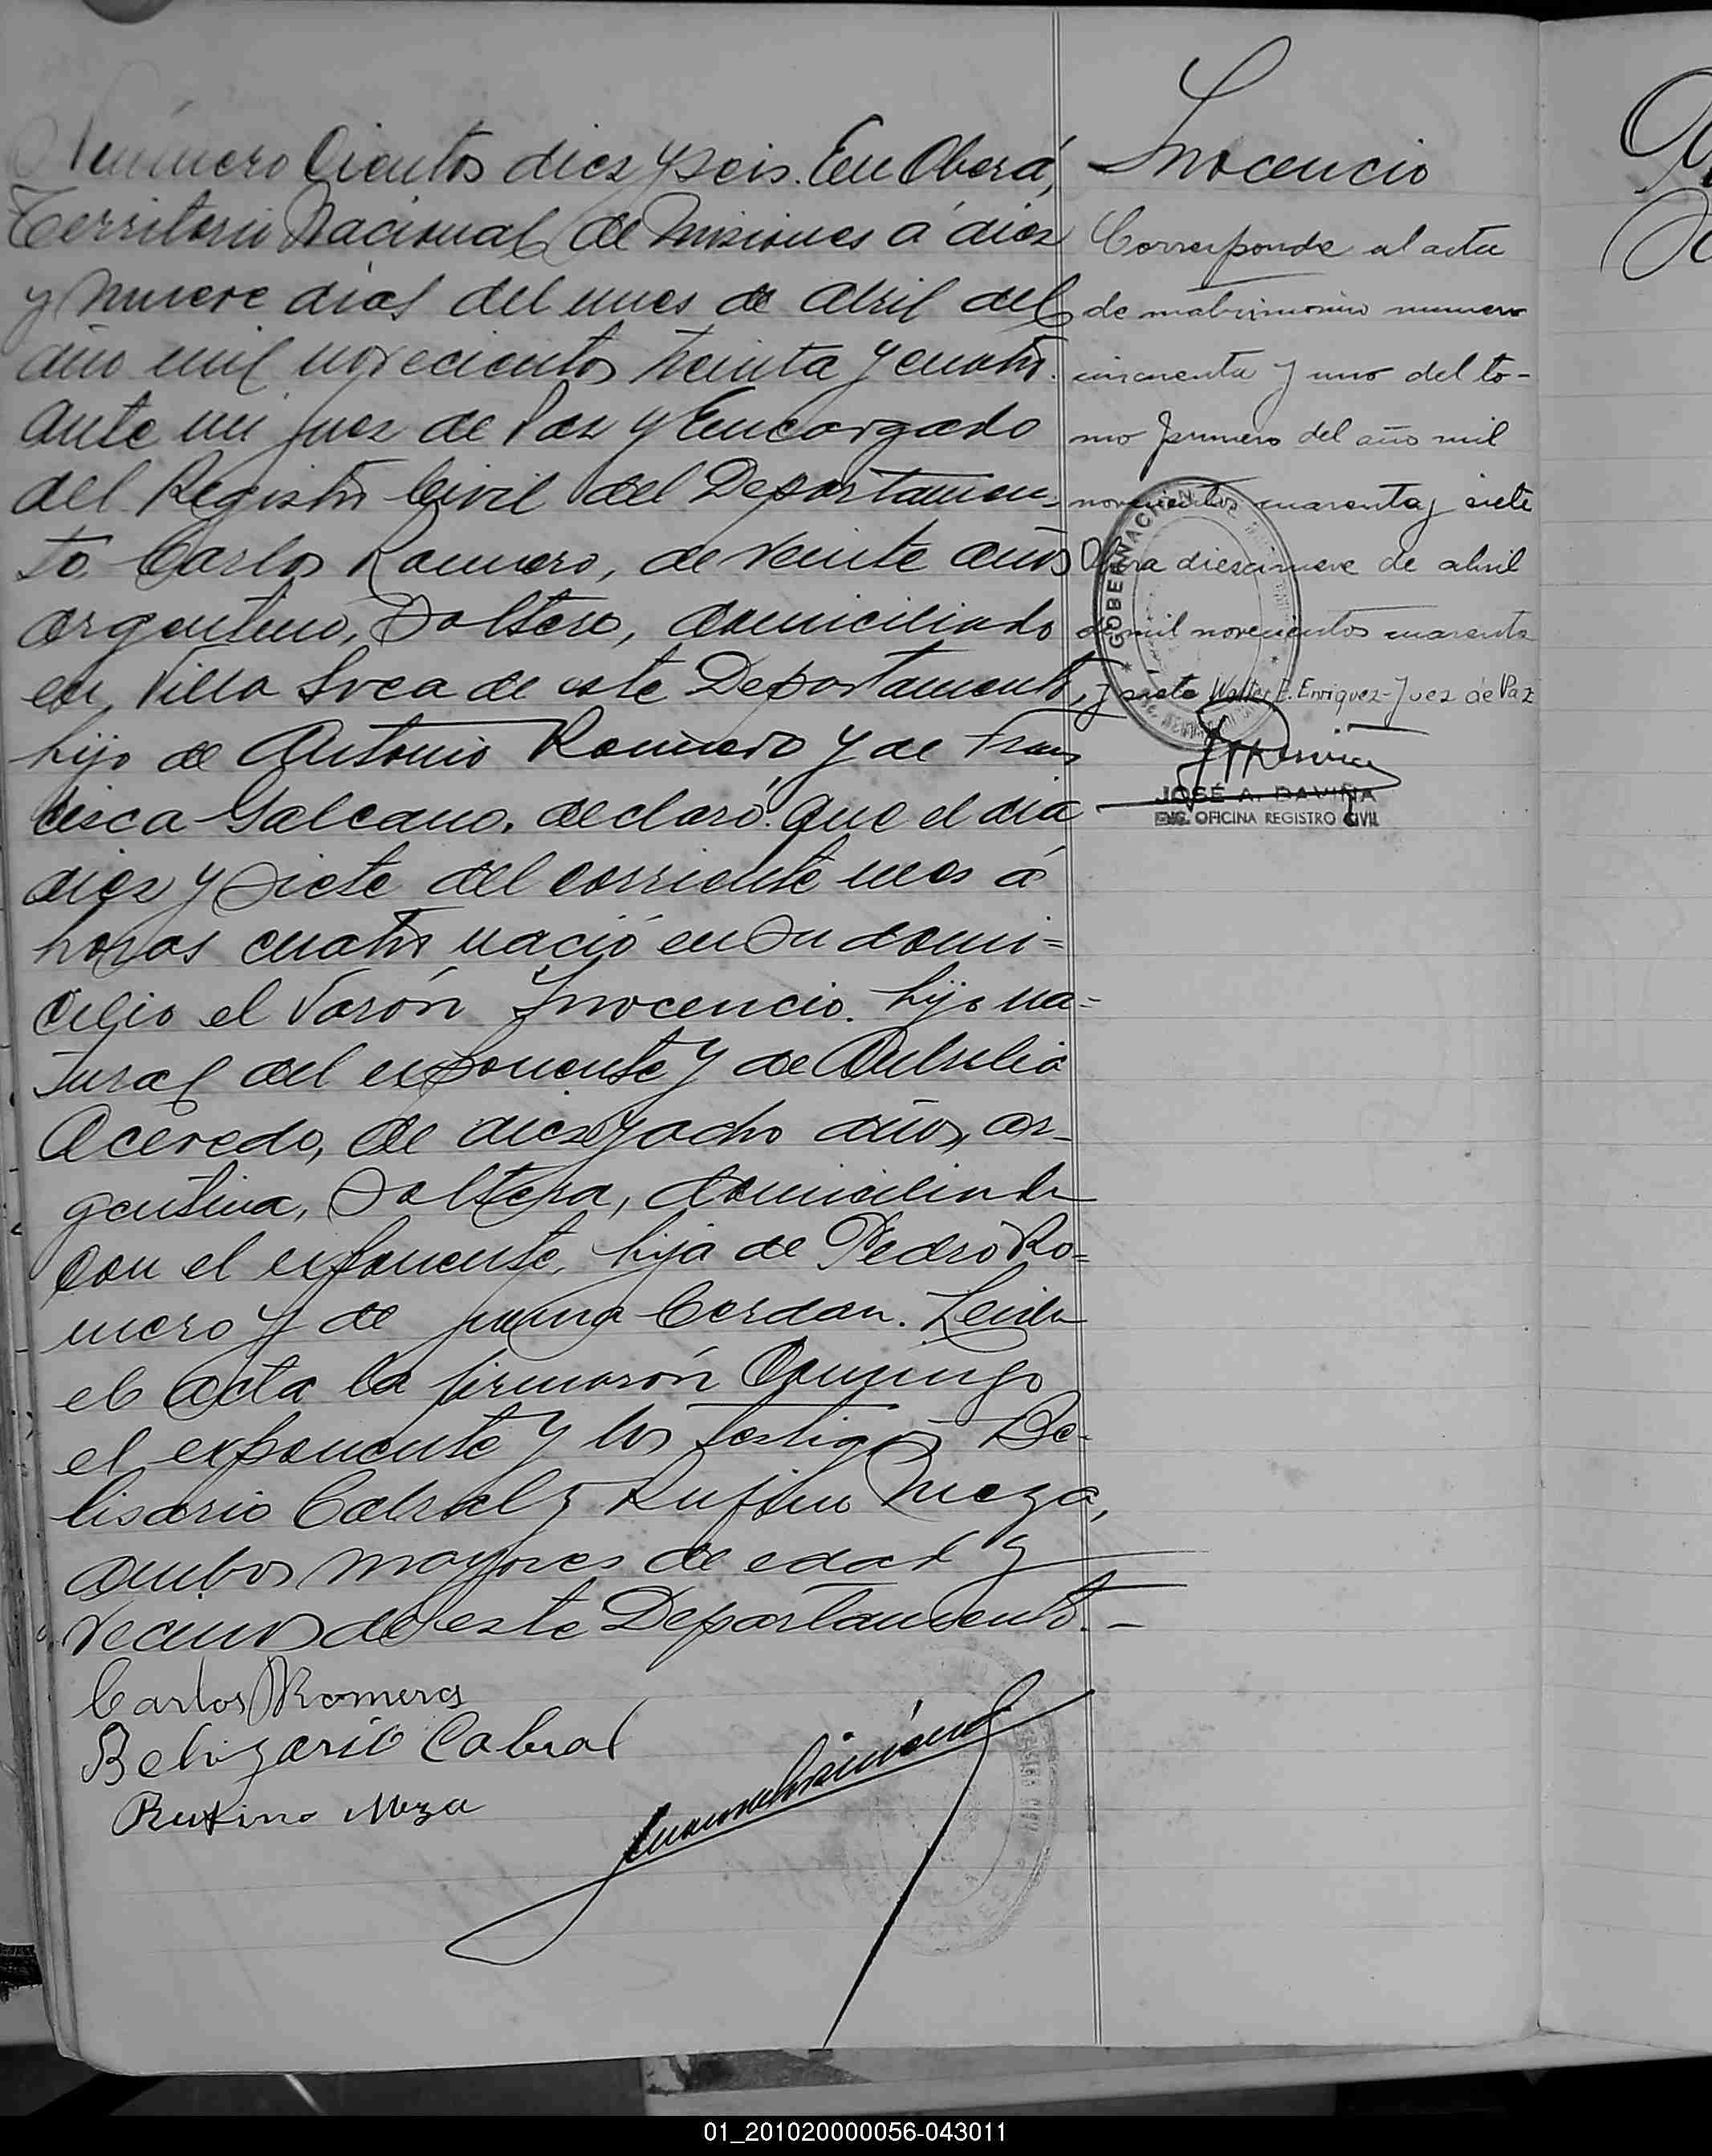 Número Cientos diez y seis. En Oberá,
Territorio Nacional de Misiones á diez
y nueve días del mes de Abril del
año mil novecientos treinta y cuatro.
ante mi juez de Paz y Encargado
del Registro Civil del Departamen-
to. Carlos Romero, de veinte años
argentino, Soltero, domiciliado
en Villa Svea de este Departamento,
hijo de Antonio Romero y de Fran
cisca Galeano, declaró: que el dia
diez y Siete del corriente mes á
horas cuatro nació en Su domi=
cilio el Varón Inocencio. hijo na=
tural del exponente y de
Acevedo, de diez y ocho años, ar-
gentina, Soltera, domiciliada
con el exponente, hija de Pedro Ro=
mero y de Juana Cordan. Leida
el acta la firmarón
el exponente y los testigos Be-
lisario Cabral y Rufino Meza,
ambos mayores de edad y
vecinos de este Departamento.-
Carlos Romero
Belizario Cabral
Rufino Meza
Inocencio
Corresponde al acta
de matrimonio numero
cincuenta y uno del to-
mo primero del año mil
novecientos cuarenta y siete
Obera diecinueve de abril
de mil novecientos cuarenta
y siete Walter E. Enriquez-Juez de Paz
GOBERNACIÓN DE
JOSÉ A. DAVIÑA
ENC. OFICINA REGISTRO CIVIL
01_201020000056-043011